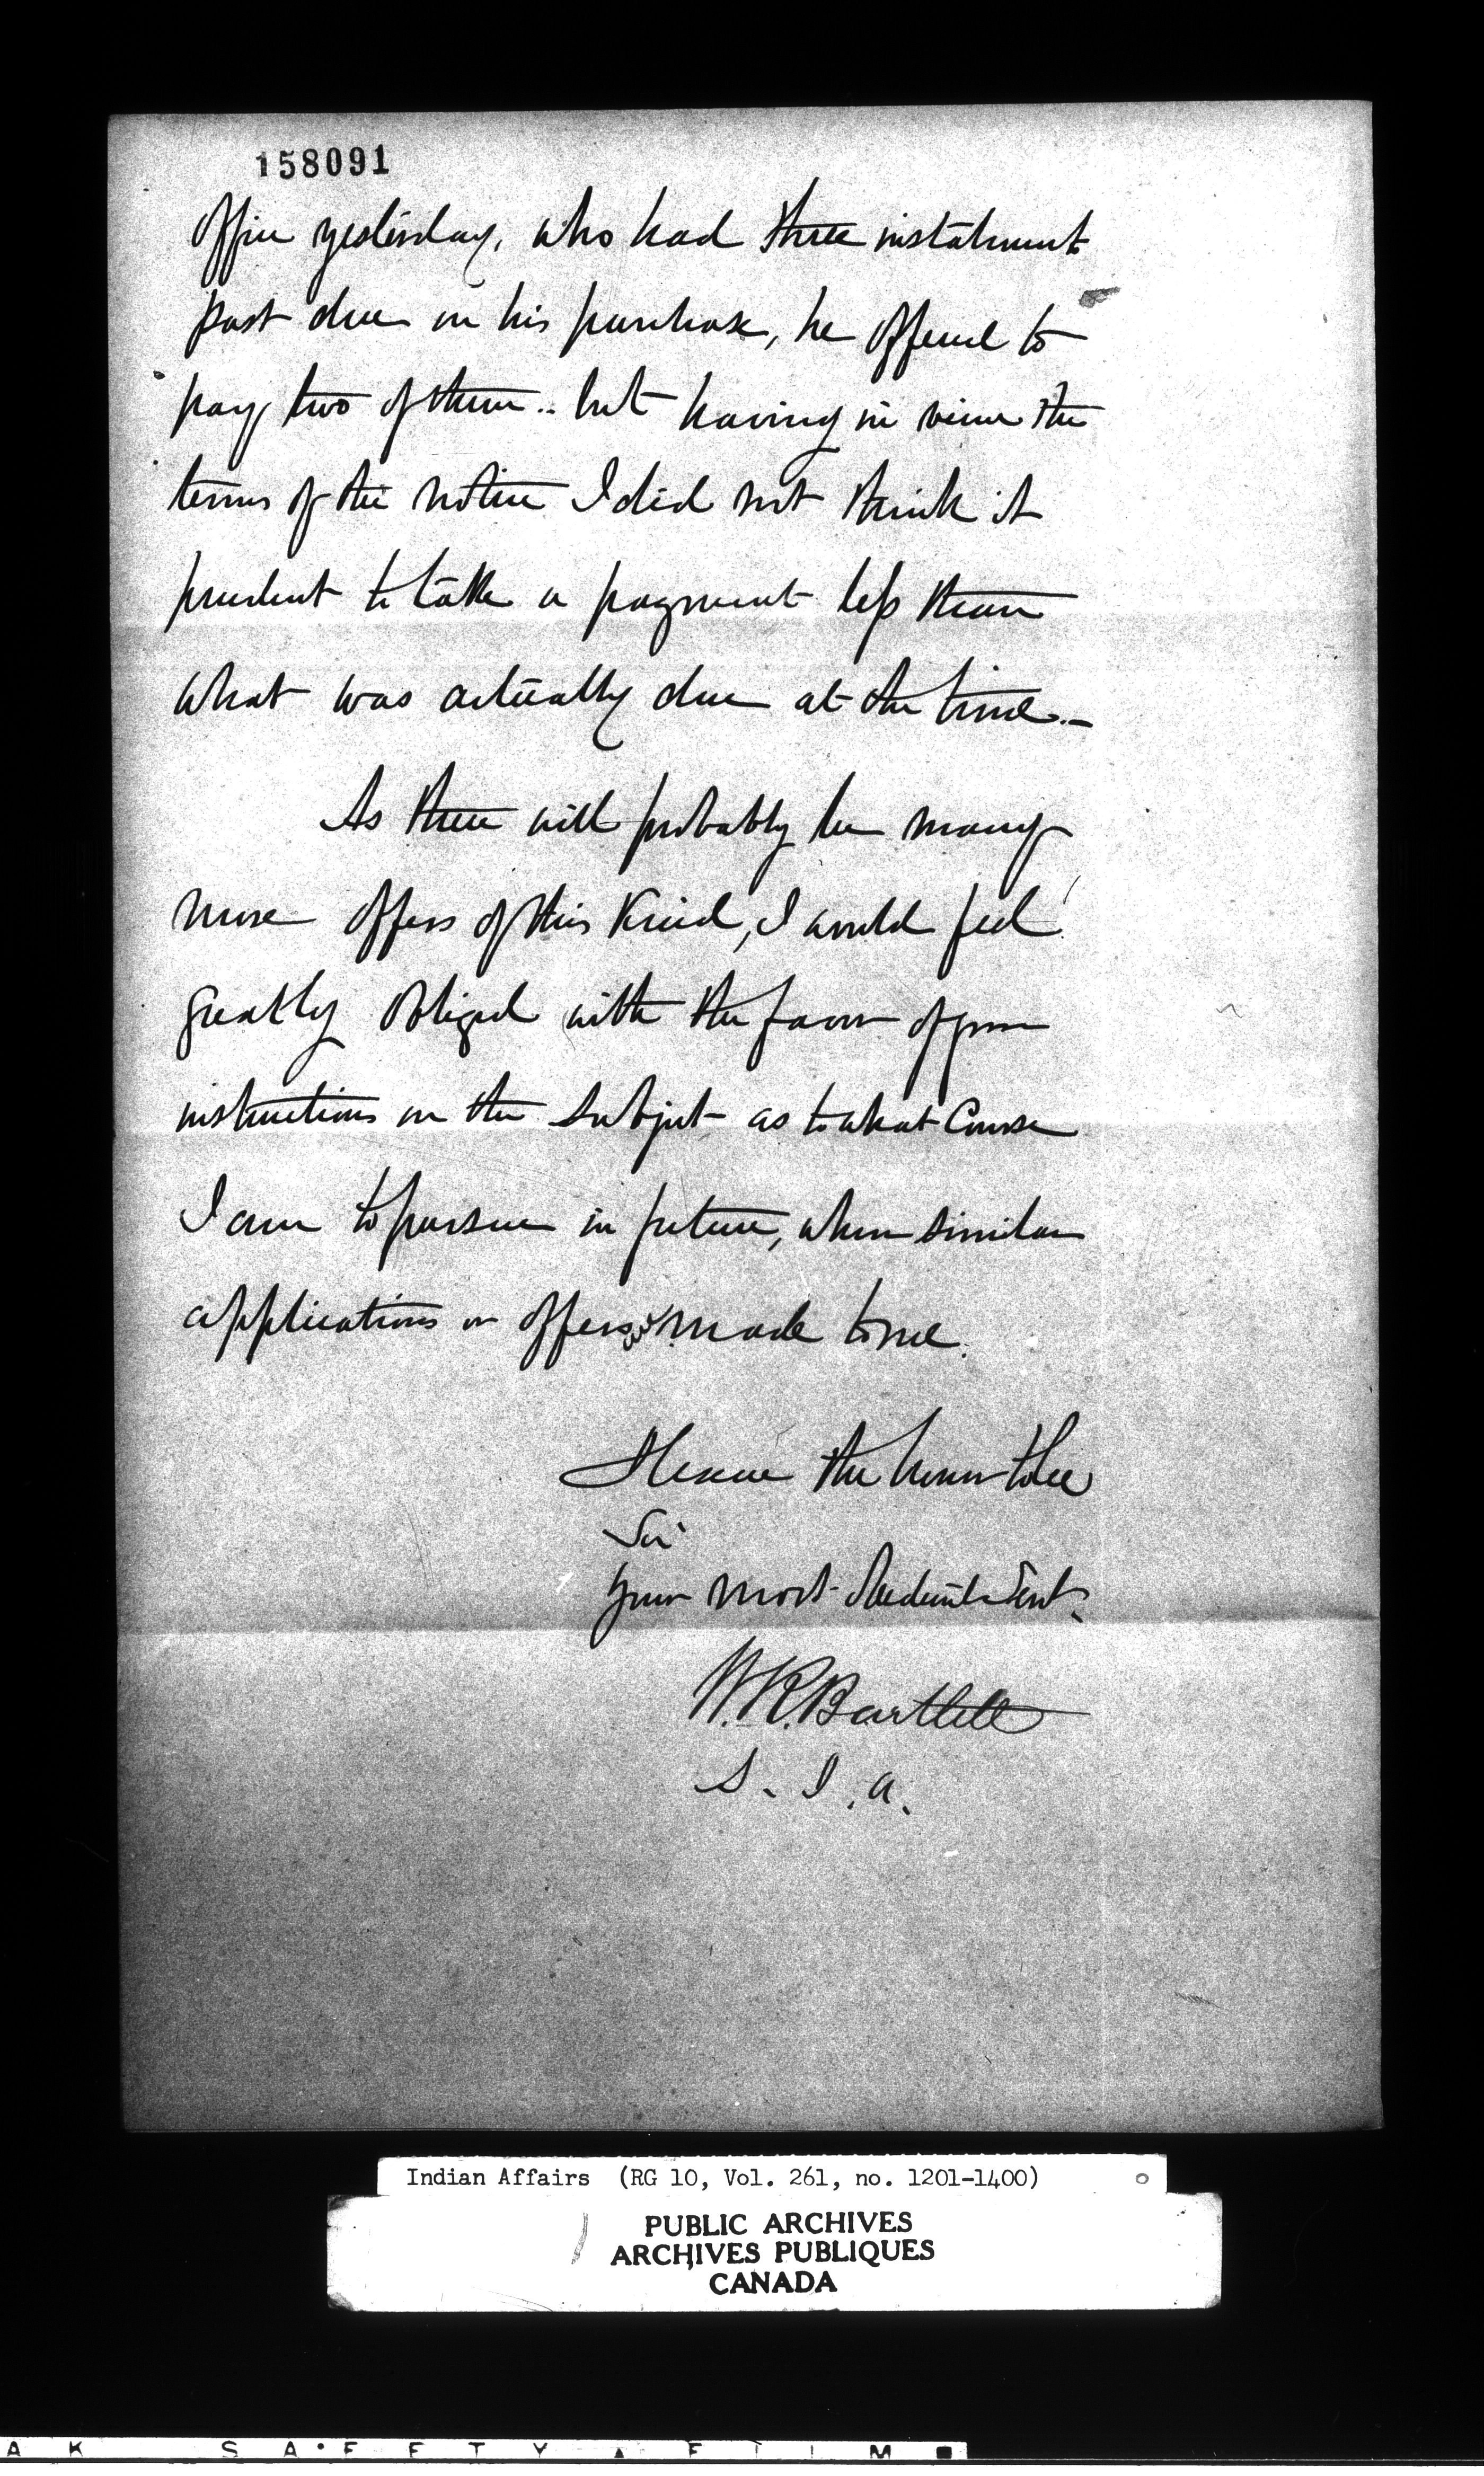 158091
Office yesterday, who had three instalments
past due on his purchase, he offered to
pay two of them.. but having in view the
terms of the notice I did not think it
prudent to take a payment less than
what was actually due at the time.-
As there will probably be many
more offers of this Kind, I would feel
greatly obliged with the favor of your
instructions on the Subject as to what Course
I am to pursue in future, when similar
applications or offers are made to me.
I have the honor to be
Sir
Your most Obedient Servt.
W. R. Bartlett
S. I. A.
Indian Affairs (RG 10, Vol. 261, no. 1201-1400)
PUBLIC ARCHIVES
ARCHIVES PUBLIQUES
CANADA
A K SAFETY FILM